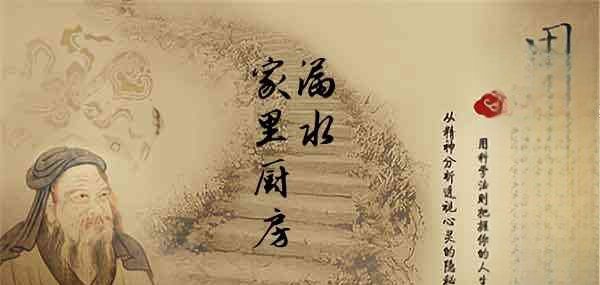 家里厨房
漏水
用
用科学法则把握你的人生
从精神分析透视心灵的隐秘